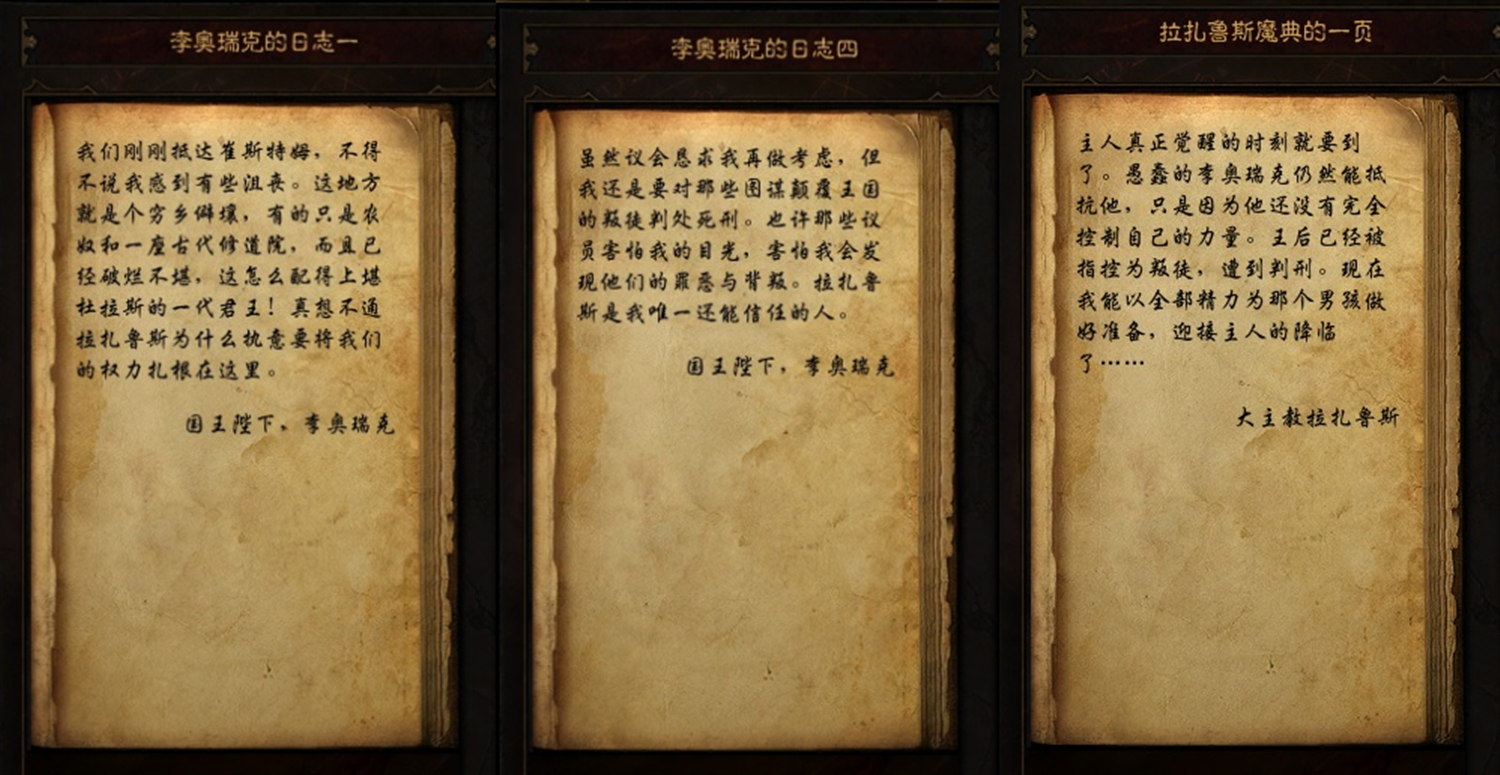 李奥瑞克的日志一
我们刚刚抵达崔斯特姆，不得
不说我感到有些沮丧。这地方
就是个穷乡僻壤，有的只是农
奴和一座古代修道院，而且已
经破烂不堪，这怎么配得上堪
杜拉斯的一代君王！真想不通
拉扎鲁斯为什么执意要将我们
的权力扎根在这里。
国王陛下，李奥瑞克
李奥瑞克的日志四
虽然议会恳求我再做考虑，但
我还是要对那些图谋颠覆王国
的叛徒判处死刑。也许那些议
员害怕我的目光，害怕我会发
现他们的罪恶与背叛。拉扎鲁
斯是我唯一还能信任的人。
国王陛下，李奥瑞克
拉扎鲁斯魔典的一页
主人真正觉醒的时刻就要到
了。愚蠢的李奥瑞克仍然能抵
抗他，只是因为他还没有完全
控制自己的力量。王后已经被
指控为叛徒，遭到判刑。现在
我能以全部精力为那个男孩做
好准备，迎接主人的降临
了……
大主教拉扎鲁斯